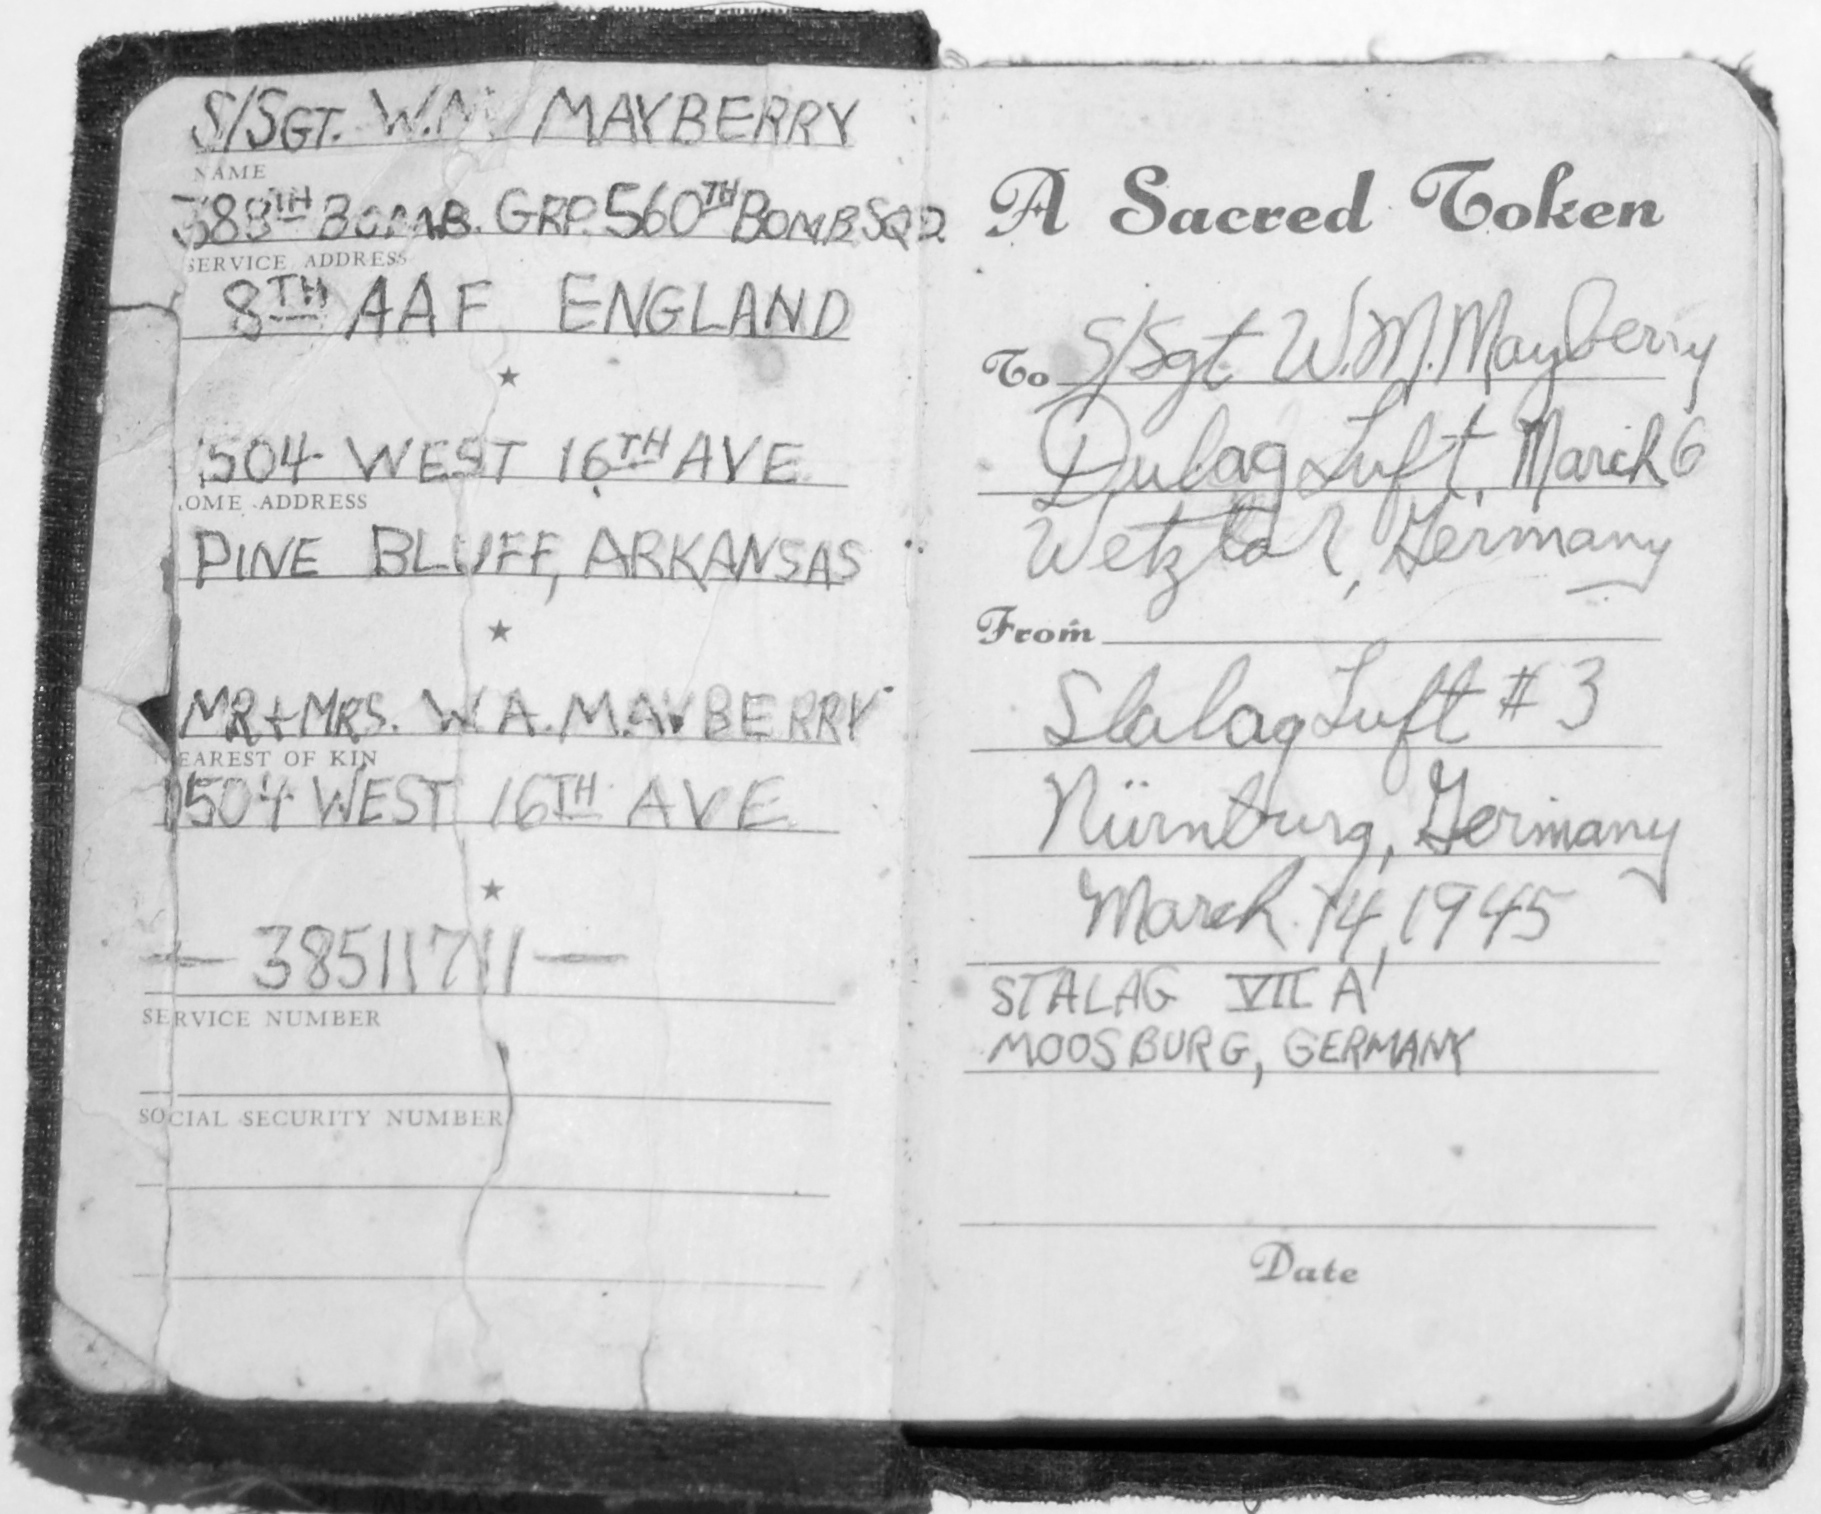 S/SGT. W.M. MAYBERRY
NAME
388TH BOMB. GRP. 560TH BOMB SQD
SERVICE ADDRESS
8TH AAF ENGLAND
1504 WEST 16TH AVE
OME ADDRESS
PINE BLUFF, ARKANSAS
MR + MRS. W.A. MAYBERRY
NEAREST OF KIN
1504 WEST 16TH AVE
— 38511711 —
SERVICE NUMBER
SOCIAL SECURITY NUMBER
A Sacred Token
To S/Sgt W.M. Mayberry
Dulag Luft, March 6
Wetzlar, Germany
From
Stalag Luft # 3
Nürnburg, Germany
March 14, 1945
STALAG VII A
MOOSBURG, GERMANY
Date